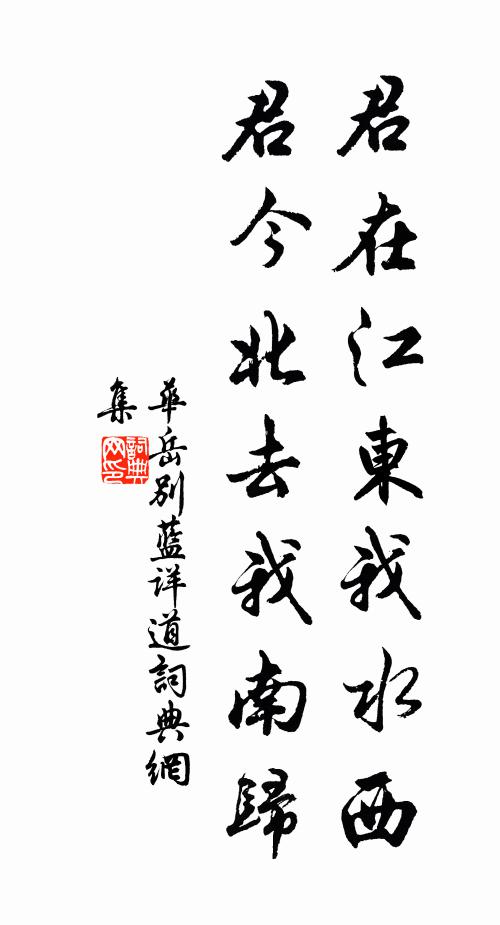 君在江東我水西
君今北去我南歸
華岳別藍詳道詞典網
集
詞典網印